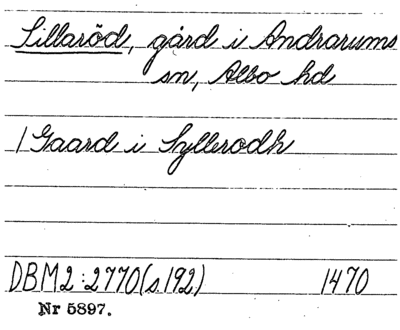 Sillaröd, gård i Andrarums
sn, Albo hd
1 Gaard i Syllerodh
DBM2:2770(s.192) 1470
Nr 5897.